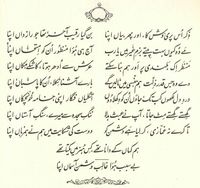 ذکر اُس پری وش کا، اور پھر بیاں اپنا
بن گیا رقیب آخر، تھا جو رازداں اپنا
مے وہ کیوں بہت پیتے بزمِ غیر میں یا رب
آج ہی ہوا منظور اُن کو امتحاں اپنا
منظر اک بلندی پر اور ہم بنا سکتے
دے وہ جس قدر ذلت ہم ہنسی میں ٹالیں گے
بارے آشنا نکلا، اُن کا پاسباں اپنا
دردِ دل لکھوں کب تک، جاؤں اُن کو دکھلا دوں
انگلیاں فگار اپنی، خامہ خونچکاں اپنا
گھستے گھستے مٹ جاتا، آپ نے عبث بدلا
ننگِ سجدہ سے میرے، سنگِ آستاں اپنا
تا کرے نہ غمازی، کر لیا ہے دشمن کو
دوست کی شکایت میں ہم نے ہمزباں اپنا
ہم کہاں کے دانا تھے، کس ہنر میں یکتا تھے
بے سبب ہوا غالبؔ دشمن آسماں اپنا